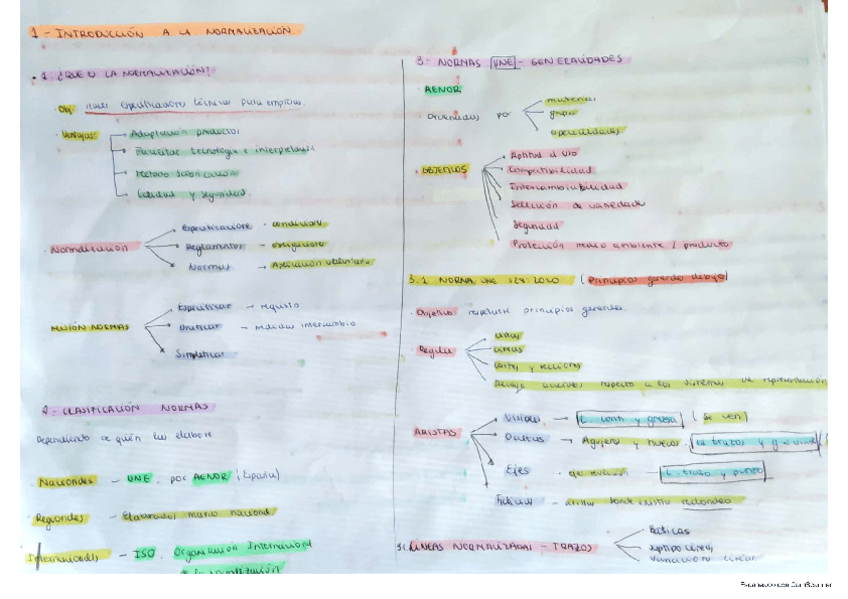 1 - INTRODUCCIÓN A LA NORMALIZACIÓN
1 ¿QUÉ ES LA NORMALIZACIÓN?
Obj. especificaciones técnicas para empleo
Ventajas:
Adaptación productos
Facilitar tecnología e interpretación
Método fabricación
Calidad y seguridad
Normalización
Especificaciones - condiciones
Reglamentos → obligatorio
Normas → Aplicación voluntaria
MISIÓN NORMAS
Especificar → requisito
Unificar → medidas intercambio
Simplificar
2 - CLASIFICACIÓN NORMAS
Dependiendo de quién las elabore
Nacionales - UNE, por AENOR (España)
Regionales - Elaborados marco nacional
Internacionales - ISO, Organización Internacional
3: NORMAS UNE - GENERALIDADES
AENOR
Ordenadas por
materias
grado
OBJETIVOS
Aptitud d uso
Compatibilidad
Intercambiabilidad
Selección de variedades
Seguridad
Protección medio ambiente / producto
3.1 NORMA UNE 128:2020 (Principios generales dibujo)
Objetivo: principios generales
Regula
vistas
líneas
cortes y secciones
respecto a los sistemas de representación
ARISTAS
Visibles → L. cont. y gruesa (se ven)
Ocultas → Agujeros y huecos
Ejes - eje revolución → L. trazo y punto
Ficticias - redondeo
LÍNEAS NORMALIZADAS - TRAZOS
Básicas